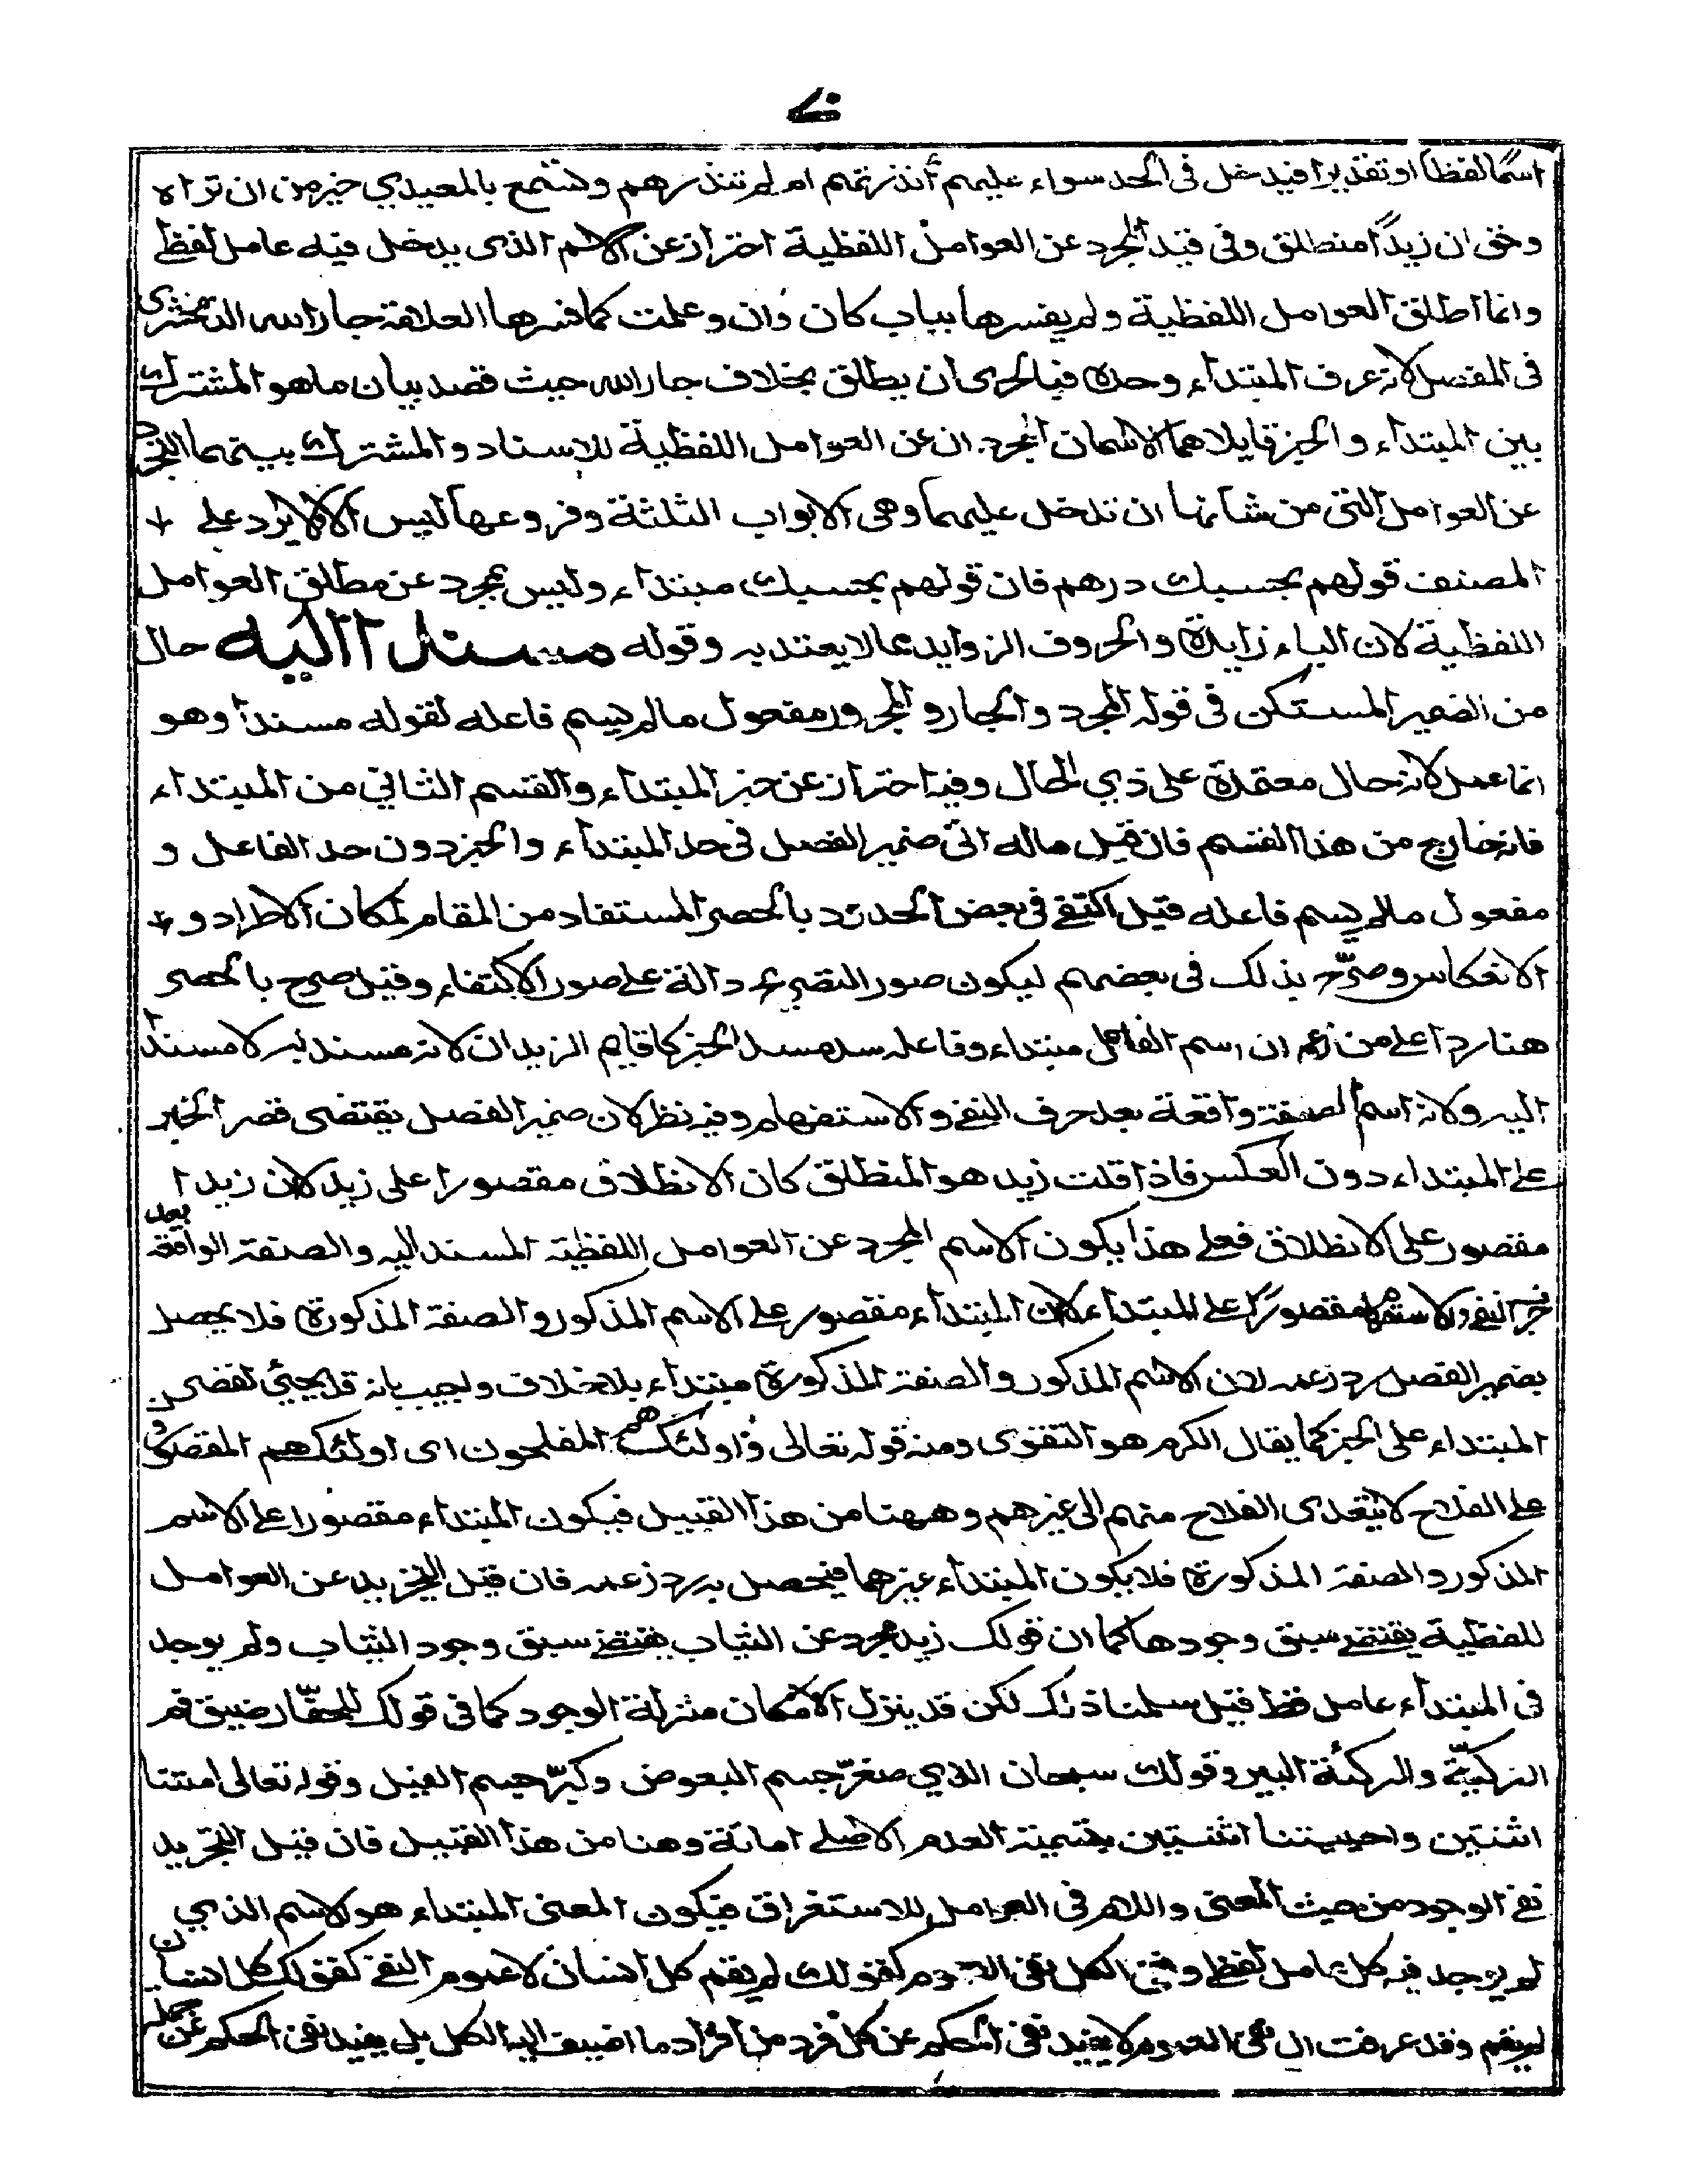 اسمًا لفظًا او تقديرا فيدخل فى الحد سواء عليهم أنذرتهم ام لم تنذرهم وتسمع بالمعيدي خير من ان تراه
وحق ان زيدًا منطلق وفى قيد المجرد عن العوامل اللفظية احتراز عن الاسم الذى يدخل فيه عامل لفظى
وانما اطلق العوامل اللفظية ولم يفسرها بباب كان وان وعلمت كما فسرها العلامة جار الله الزمخشرى
فى المفصل لانه عرف المبتداء وحده فبالحرى ان يطلق بخلاف جار الله حيث قصد بيان ما هو المشترك
بين المبتداء والخبر قايلا هما الاسمان المجردان عن العوامل اللفظية للاسناد والمشترك بينهما التجرد
عن العوامل التى من شانها ان تدخل عليهما وهى الابواب الثلثة وفروعها ليس الا فلا يرد على
المصنف قولهم بحسبك درهم فان قولهم بحسبك مبتداء وليس بمجرد عن مطلق العوامل
اللفظية لان الباء زايدة والحروف الزوايد مما لا يعتد به وقوله مسندا اليه حال
من الضمير المستكن فى قوله المجرد والجار والمجرور مفعول ما لم يسم فاعله لقوله مسندا وهو
انما عمل لانه حال معتمدة على ذي الحال وفيه احتراز عن خبر المبتداء والقسم الثاني من المبتداء
فانه خارج من هذا القسم فان قيل ماله اتى ضمير الفصل فى حد المبتداء والخبر دون حد الفاعل و
مفعول ما لم يسم فاعله قيل اكتفى فى بعض الحدود بالحصر المستفاد من المقام لمكان الاطراد و
الانعكاس وصرّح بذلك فى بعضهم ليكون صور التصريح دالة على صور الاكتفاء وقيل صرح بالحصر
هنا ردا على من زعم ان اسم الفاعل مبتداء وفاعله سد مسد الخبر كما قايم الزيدان لانه مسند به لا مسندا
اليه ولانه اسم الصفة واقعة بعد حرف النفى والاستفهام وفيه نظر لان ضمير الفصل يقتضى قصر الخبر
على المبتداء دون العكس فاذا قلت زيد هو المنطلق كان الانطلاق مقصورا على زيد لان زيدا
مقصور على الانطلاق فعلى هذا يكون الاسم المجرد عن العوامل اللفظية المسند اليه والصفة الواقعة بعد
حرف النفى والاستفهام مقصورًا على المبتداء لان المبتداء مقصور على الاسم المذكور والصفة المذكورة فلا يحصل
بضمير الفصل رد زعمه لان الاسم المذكور والصفة المذكورة مبتداء بلا خلاف واجيب بانه قد يجئ لقصر
المبتداء على الخبر كما يقال الكرم هو التقوى ومنه قوله تعالى واولئك هم المفلحون اى اولئك هم المقصورون
على الفلاح لا يتعدى الفلاح منهم الى غيرهم وههنا من هذا القبيل فيكون المبتداء مقصورا على الاسم
المذكور والصفة المذكورة فلا يكون المبتداء غيرهما فيحصل به رد زعمه فان قيل التجريد عن العوامل
اللفظية يقتضى سبق وجودها كما ان قولك زيد مجرد عن الثياب يقتضى سبق وجود الثياب ولم يوجد
فى المبتداء عامل قط قيل سلمنا ذلك لكن قد ينزل الامكان منزلة الوجود كما فى قولك للحفّار ضيق فم
الركيّة والركية البير وقولك سبحان الذي صغرّ جسم البعوض وكبرّ جسم الفيل وقوله تعالى امتنا
اثنتين واحييتنا اثنتين بتسمية العدم الاصلى اماتة وهنا من هذا القبيل فان قيل التجريد
نفى الوجود من حيث المعنى واللام فى العوامل للاستغراق فيكون المعنى المبتداء هو الاسم الذي
لم يوجد فيه كل عامل لفظى ونفى الكل نفى العموم كقولك لم يقم كل انسان لا عموم النفى كقولك كل انسان
لم يقم وقد عرفت ان نفى العموم لا يفيد نفى الحكم عن كل فرد من افراد ما اضيف اليه الكل بل يفيد نفى الحكم عن جملة